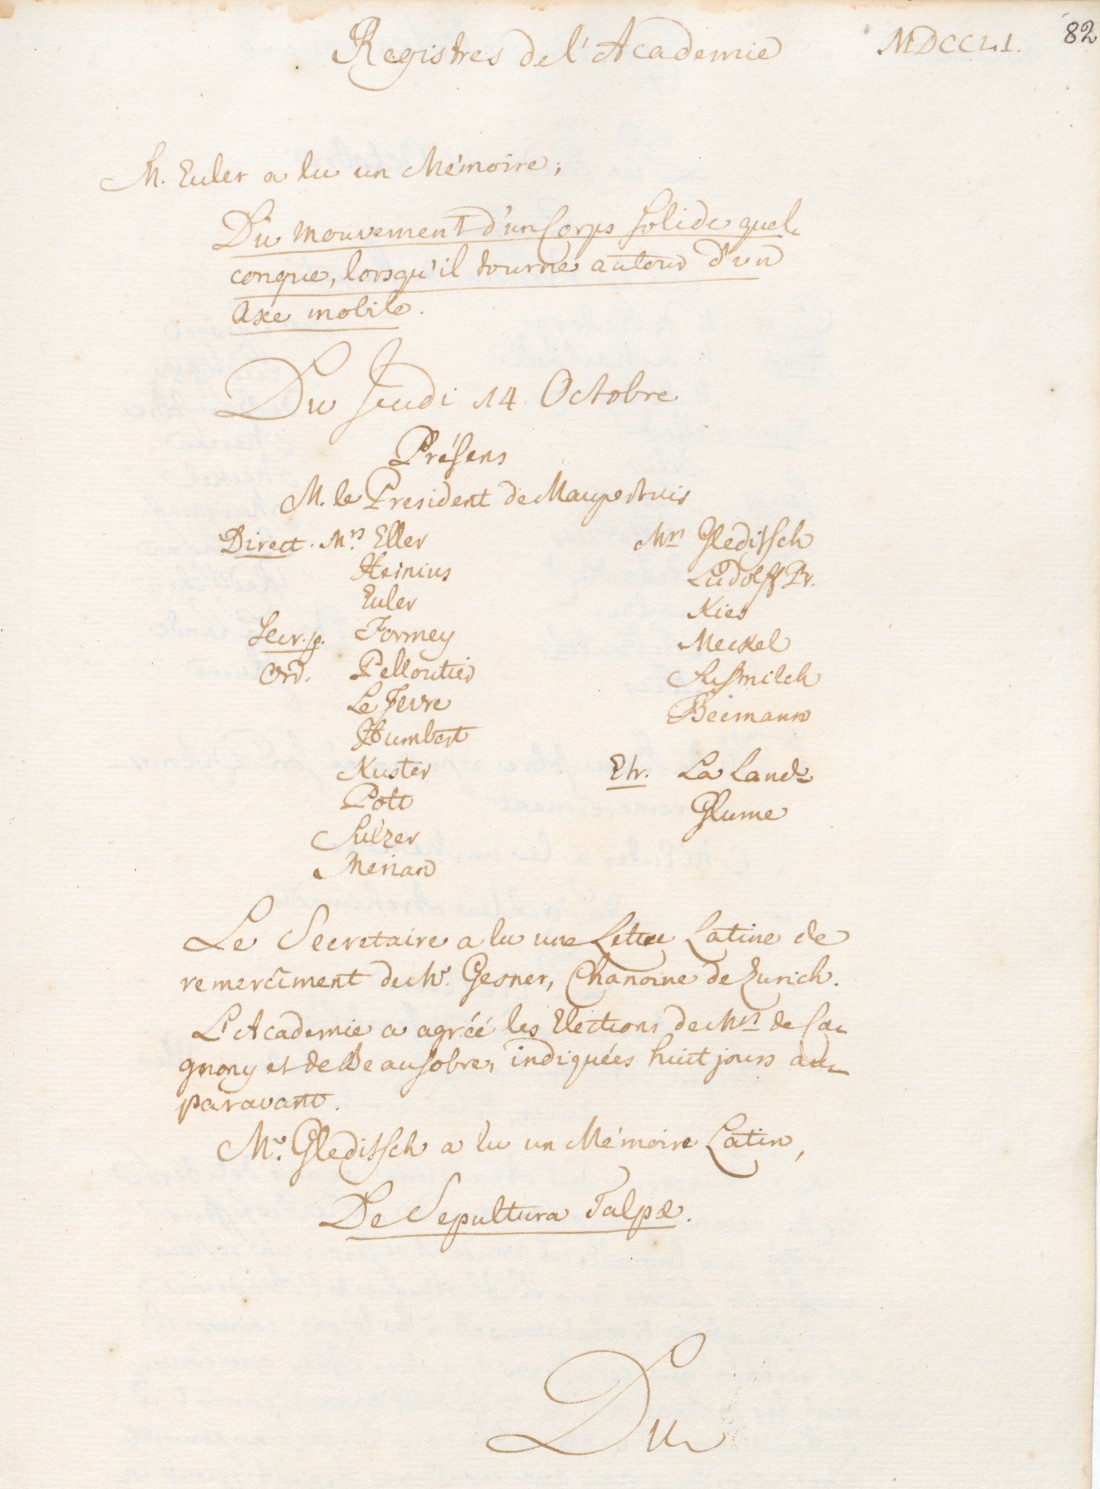 Registres de l'Academie MDCCLI. 82
M. Euler a lu un Mémoire;
Du mouvement d'un Corps solide quel-
conque, lorsqu'il tourne autour d'un
Axe mobile.
Du Jeudi 14. Octobre
Présens
M. le President de Maupertuis
Direct. Mrs. Eller
Heinius
Euler
Secr. p. Formey
Ord. Pelloutier
Le Fevre
Humbert
Kuster
Pott
Sulzer
Merian
Mrs Gleditsch
Ludolff Pr.
Kies
Meckel
Susmilch
Becmann
Etr. La Lande
Glume
Le Secretaire a lu une Lettre Latine de
remerciment de Mr. Gesner, Chanoine de Zurich.
L'Academie a agréé les Elections de Mrs. de Ca-
gnony et de Beausobre, indiquées huit jours au-
paravant.
Mr. Gleditsch a lu un Mémoire Latin,
De Sepultura Talpæ.
Du